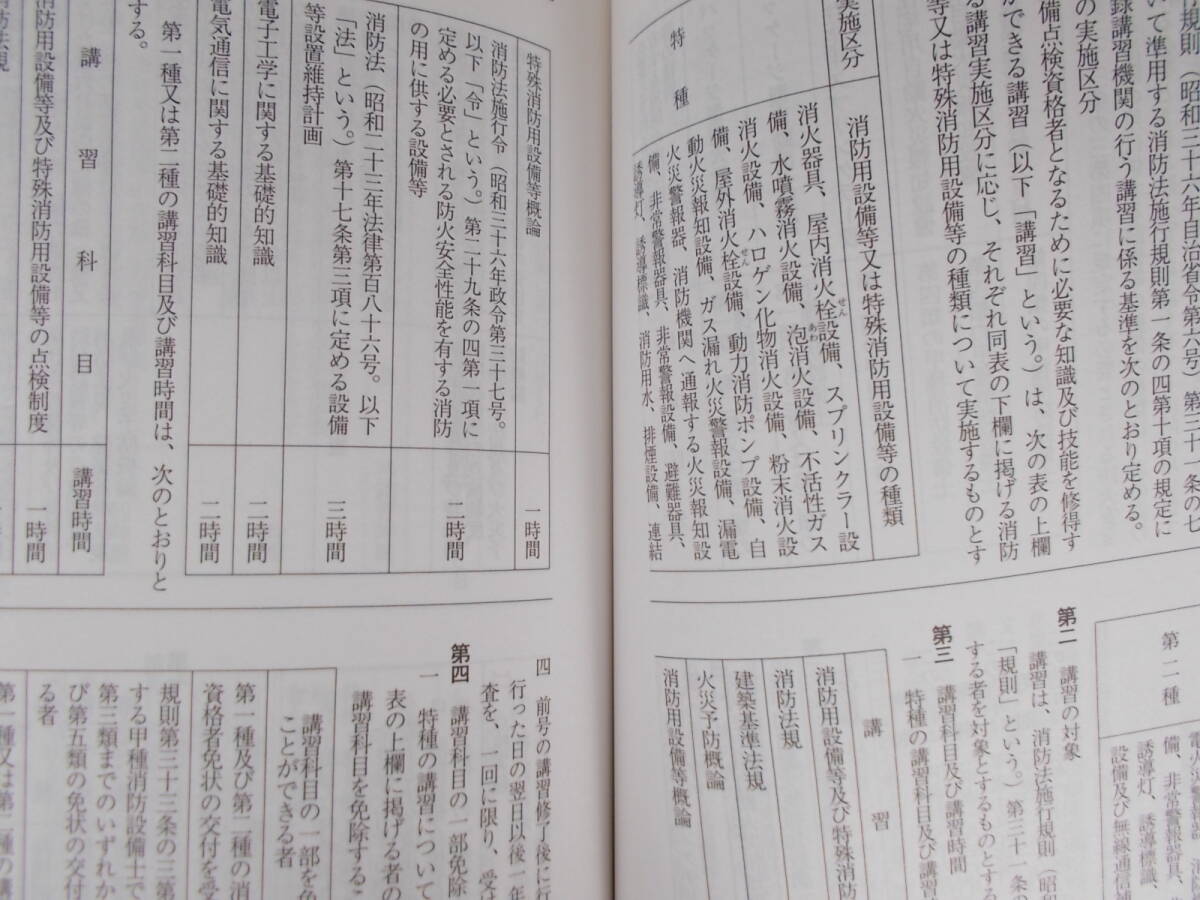 行規則（昭和三十六年自治省令第六号）第三十一条の七
いて準用する消防法施行規則第一条の四第十項の規定に
録講習機関の行う講習に係る基準を次のとおり定める。
の実施区分
備点検資格者となるために必要な知識及び技能を修得す
ができる講習（以下「講習」という。）は、次の表の上欄
る講習実施区分に応じ、それぞれ同表の下欄に掲げる消防
等又は特殊消防用設備等の種類について実施するものとす
実施区分
消防用設備等又は特殊消防用設備等の種類
特種
消火器具、屋内消火栓設備、スプリンクラー設
備、水噴霧消火設備、泡消火設備、不活性ガス
消火設備、ハロゲン化物消火設備、粉末消火設
備、屋外消火栓設備、動力消防ポンプ設備、自
動火災報知設備、ガス漏れ火災警報設備、漏電
火災警報器、消防機関へ通報する火災報知設
備、非常警報器具、非常警報設備、避難器具、
誘導灯、誘導標識、消防用水、排煙設備、連結
第二種
備、非常警報器具、
誘導灯、誘導標識、
設備及び無線通信補
第二　講習の対象
講習は、消防法施行規則（昭和
「規則」という。）第三十一条の
する者を対象とするものとする
第三　講習科目及び講習時間
一　特種の講習科目及び講習
講習
消防用設備等及び特殊消防
消防法規
建築基準法規
火災予防概論
消防用設備等概論
特殊消防用設備等概論
一時間
消防法施行令（昭和三十六年政令第三十七号。
以下「令」という。）第二十九条の四第一項に
定める必要とされる防火安全性能を有する消防
の用に供する設備等
二時間
消防法（昭和二十三年法律第百八十六号。以下
「法」という。）第十七条第三項に定める設備
等設置維持計画
三時間
電子工学に関する基礎的知識
二時間
電気通信に関する基礎的知識
二時間
第一種又は第二種の講習科目及び講習時間は、次のとおりと
する。
講習科目
講習時間
消防用設備等及び特殊消防用設備等の点検制度
一時間
消防法規
四　前号の講習修了後に行
行った日の翌日以後一年
査を、一回に限り、受け
第四　講習科目の一部免除
一　特種の講習について
表の上欄に掲げる者の
講習科目を免除するこ
講習科目の一部を免
ことができる者
第一種及び第二種の消
資格者免状の交付を受
規則第三十三条の三第
する甲種消防設備士で
第三類までのいずれか
び第五類の免状の交付
る者
第一種又は第二種の講